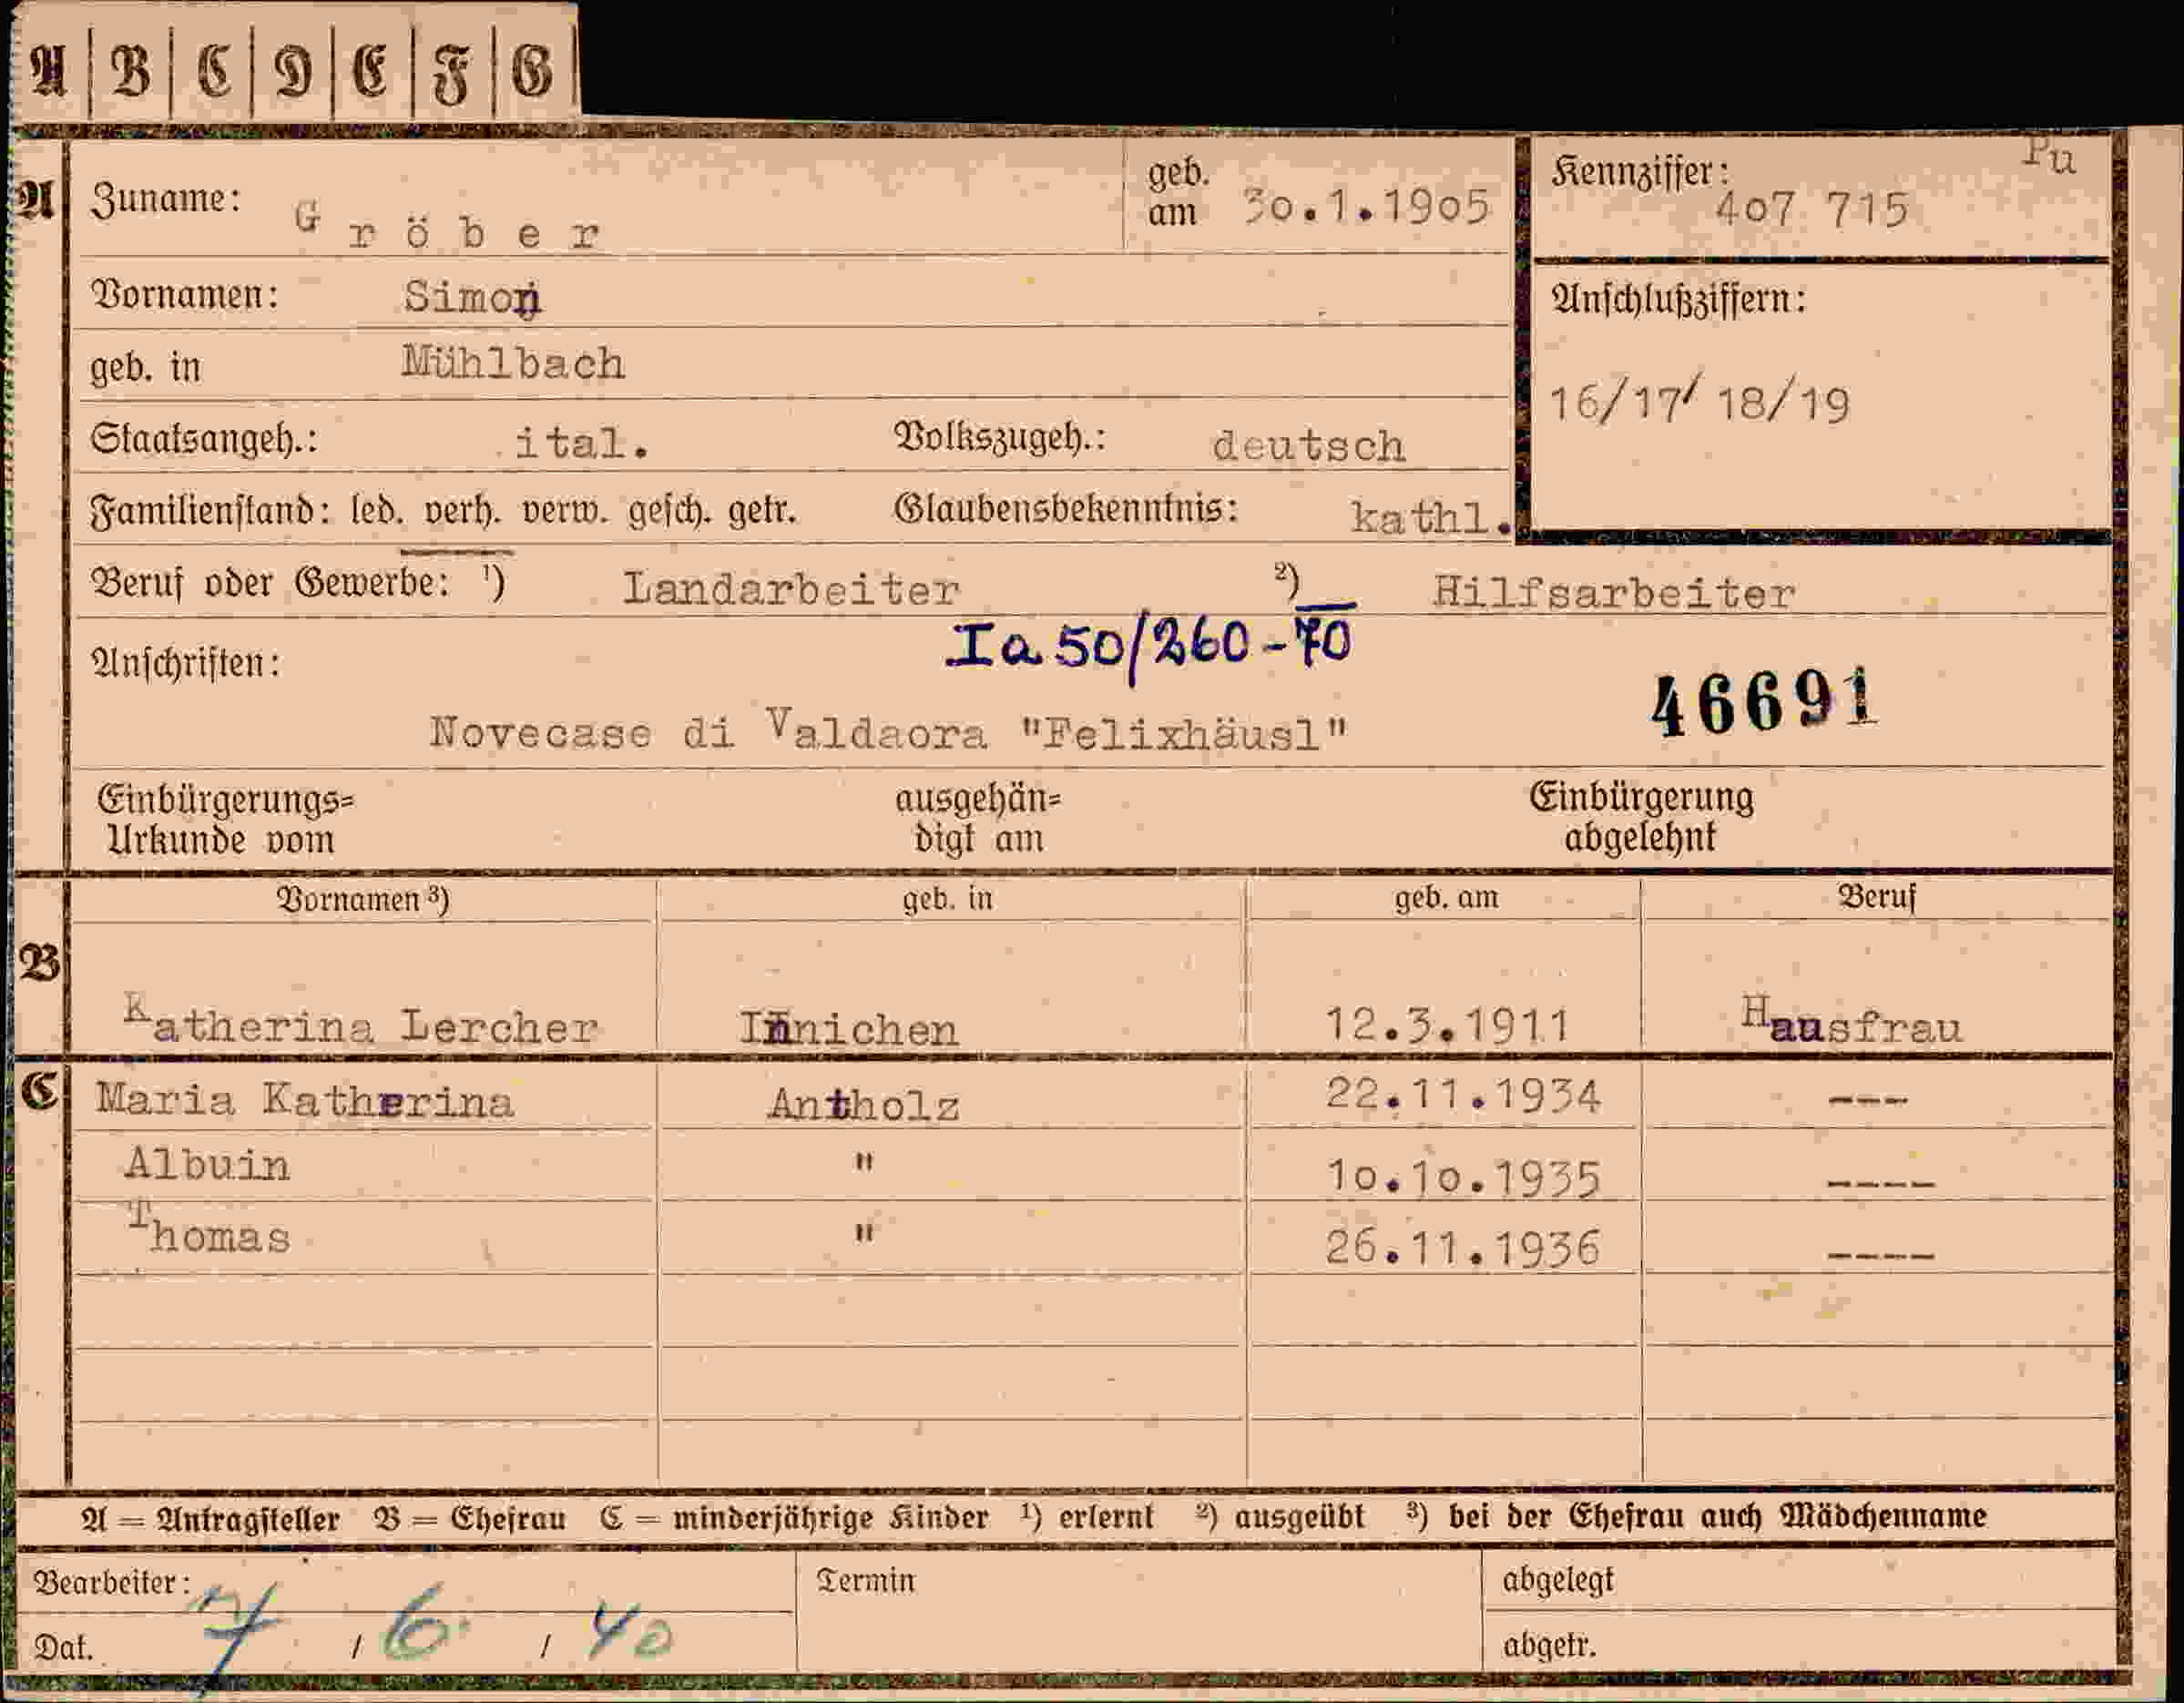 A | B | C | D | E | F | G
Pu
A Zuname: Gröber geb. am 30.1.1905 Kennziffer: 407 715
Vornamen: Simon Anschlußziffern:
geb. in Mühlbach
16/17/ 18/19
Staatsangeh.: ital. Volkszugeh.: deutsch
Familienstand: led. verh. verw. gesch. getr. Glaubensbekenntnis: kathl.
Beruf oder Gewerbe: 1) Landarbeiter 2) Hilfsarbeiter
Ia 50/260-70
Anschriften:
46691
Novecase di Valdaora "Felixhäusl"
Einbürgerungs= ausgehän= Einbürgerung
Urkunde vom digt am abgelehnt
Vornamen 3) geb. in geb. am Beruf
B
Katherina Lercher Innichen 12.3.1911 Hausfrau
C Maria Katherina Antholz 22.11.1934 ---
Albuin " 10.10.1935 ----
Thomas " 26.11.1936 ----
A = Antragsteller B = Ehefrau C = minderjährige Kinder 1) erlernt 2) ausgeübt 3) bei der Ehefrau auch Mädchenname
Bearbeiter: Termin abgelegt
Dat. 7 / 6 / 40 abgetr.